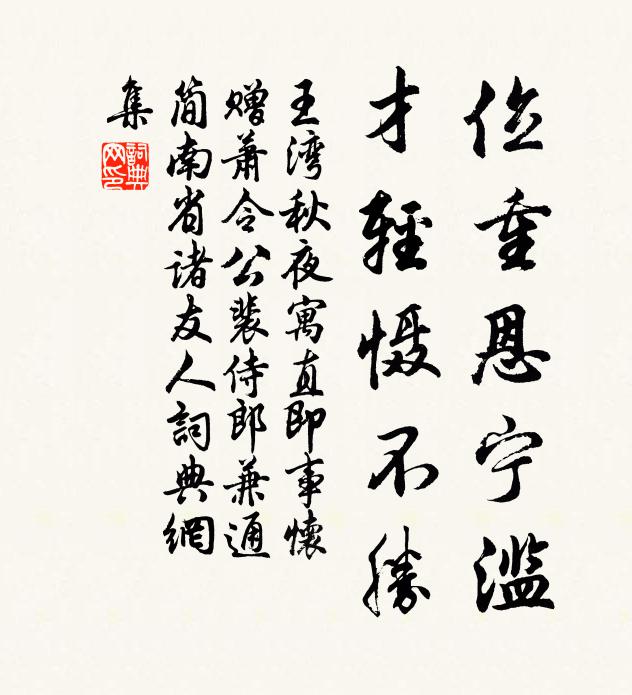 位重恩宁滥
才輕慑不勝
王湾秋夜寓直即事懷
赠蕭令公裴侍郎兼通
简南省诸友人詞典網
集
詞典
网